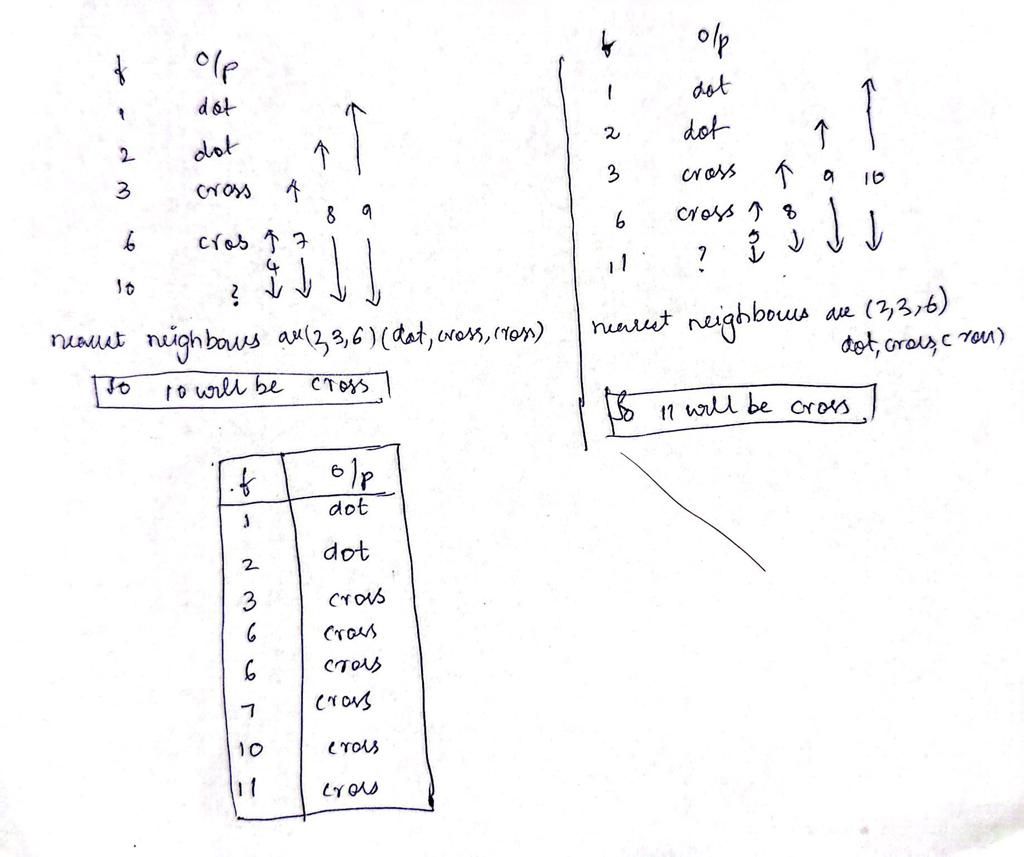 f o/p
1 dot
2 dot
3 cross
8 9
6 cros 7
4
10 ?
nearest neighbours are (2,3,6) (dot, cross, cross)
So 10 will be cross
f o/p
1 dot
2 dot
3 cross 9 10
6 cross 8
5
11 ?
nearest neighbours are (2,3,6)
dot, cross, cross)
So 11 will be cross
f o/p
1 dot
2 dot
3 cross
6 cross
6 cross
7 cross
10 cross
11 cross